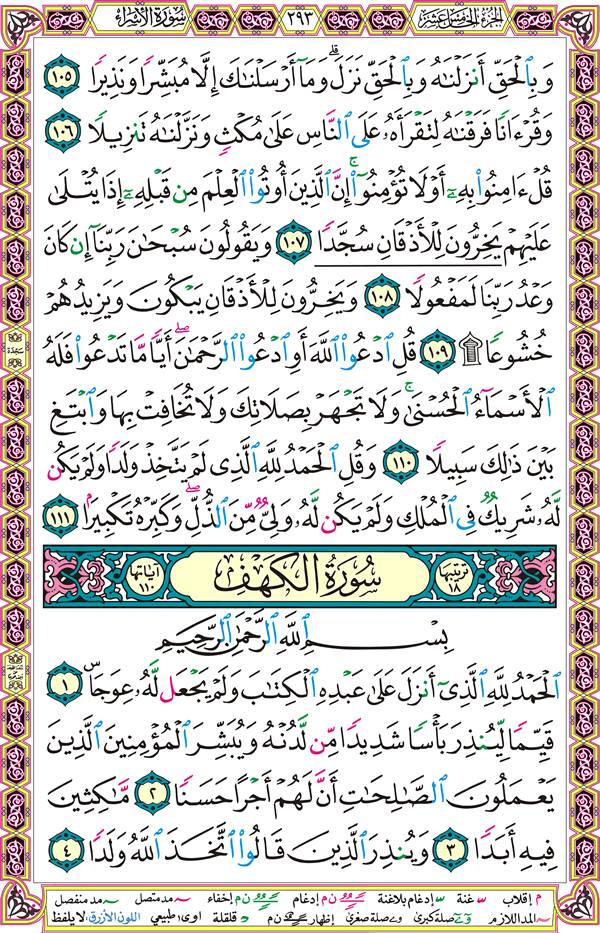 سورة الإسراء
٢٩٣
الجزء الخامس عشر
وَبِٱلْحَقِّ أَنزَلْنَٰهُ وَبِٱلْحَقِّ نَزَلَ ۗ وَمَآ أَرْسَلْنَٰكَ إِلَّا مُبَشِّرًا وَنَذِيرًا ١٠٥
وَقُرْءَانًا فَرَقْنَٰهُ لِتَقْرَأَهُۥ عَلَى ٱلنَّاسِ عَلَىٰ مُكْثٍ وَنَزَّلْنَٰهُ تَنزِيلًا ١٠٦
قُلْ ءَامِنُوا۟ بِهِۦٓ أَوْ لَا تُؤْمِنُوٓا۟ ۚ إِنَّ ٱلَّذِينَ أُوتُوا۟ ٱلْعِلْمَ مِن قَبْلِهِۦٓ إِذَا يُتْلَىٰ
عَلَيْهِمْ يَخِرُّونَ لِلْأَذْقَانِ سُجَّدًا ١٠٧ وَيَقُولُونَ سُبْحَٰنَ رَبِّنَآ إِن كَانَ
وَعْدُ رَبِّنَا لَمَفْعُولًا ١٠٨ وَيَخِرُّونَ لِلْأَذْقَانِ يَبْكُونَ وَيَزِيدُهُمْ
خُشُوعًا ۩ ١٠٩ قُلِ ٱدْعُوا۟ ٱللَّهَ أَوِ ٱدْعُوا۟ ٱلرَّحْمَٰنَ ۖ أَيًّا مَّا تَدْعُوا۟ فَلَهُ
ٱلْأَسْمَآءُ ٱلْحُسْنَىٰ ۚ وَلَا تَجْهَرْ بِصَلَاتِكَ وَلَا تُخَافِتْ بِهَا وَٱبْتَغِ
بَيْنَ ذَٰلِكَ سَبِيلًا ١١٠ وَقُلِ ٱلْحَمْدُ لِلَّهِ ٱلَّذِى لَمْ يَتَّخِذْ وَلَدًا وَلَمْ يَكُن
لَّهُۥ شَرِيكٌ فِى ٱلْمُلْكِ وَلَمْ يَكُن لَّهُۥ وَلِىٌّ مِّنَ ٱلذُّلِّ ۖ وَكَبِّرْهُ تَكْبِيرًۢا ١١١
ترتيبها ١٨
سورة الكهف
آياتها ١١٠
بِسْمِ ٱللَّهِ ٱلرَّحْمَٰنِ ٱلرَّحِيمِ
ٱلْحَمْدُ لِلَّهِ ٱلَّذِىٓ أَنزَلَ عَلَىٰ عَبْدِهِ ٱلْكِتَٰبَ وَلَمْ يَجْعَل لَّهُۥ عِوَجَاۜ ١
قَيِّمًا لِّيُنذِرَ بَأْسًا شَدِيدًا مِّن لَّدُنْهُ وَيُبَشِّرَ ٱلْمُؤْمِنِينَ ٱلَّذِينَ
يَعْمَلُونَ ٱلصَّٰلِحَٰتِ أَنَّ لَهُمْ أَجْرًا حَسَنًا ٢ مَّٰكِثِينَ
فِيهِ أَبَدًا ٣ وَيُنذِرَ ٱلَّذِينَ قَالُوا۟ ٱتَّخَذَ ٱللَّهُ وَلَدًا ٤
سجدة
م إقلاب غنة إدغام بلاغنة ن م إدغام ن م إخفاء مد متصل مد منفصل
المد اللازم صلة كبرى صلة صغرى إظهار ن م قلقلة اوى طبيعي اللون الأزرق لا يلفظ